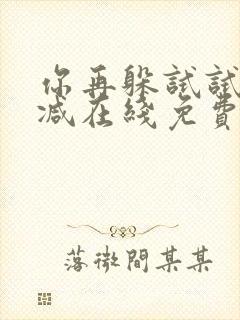 你再躲試試
減在綫免費
落微間某某